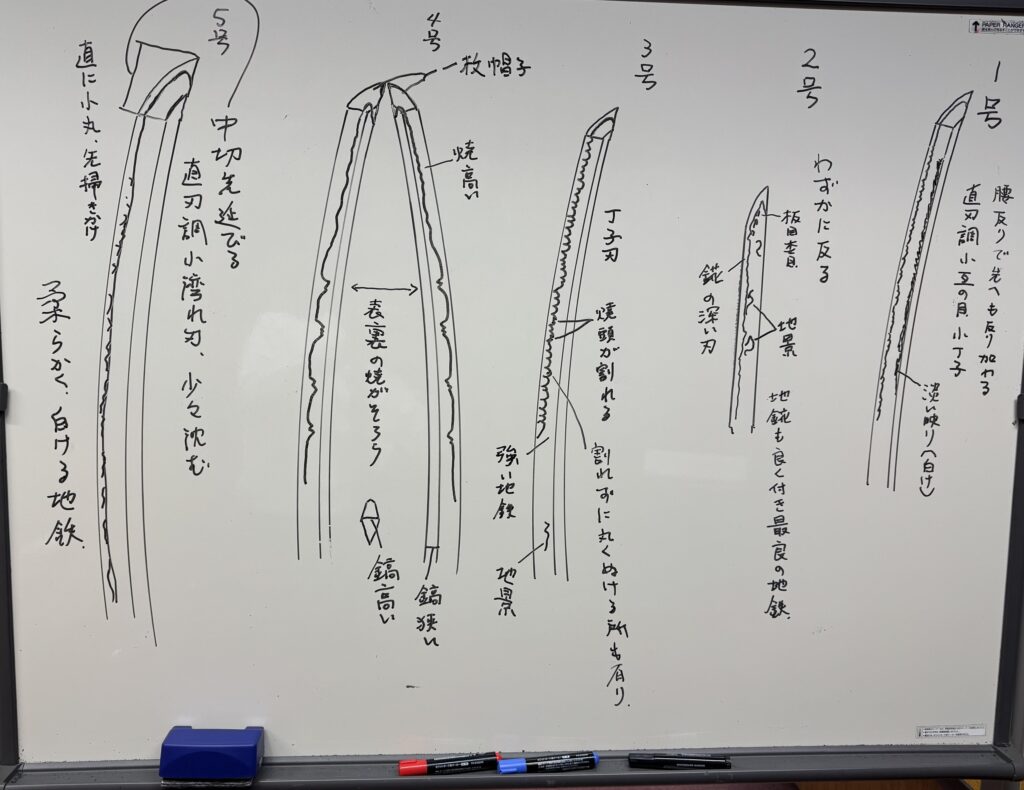 PAPER RANGER
1号
腰反りで先へも反り加わる
直刃調小互の目、小丁子
淡い映り(白け)
2号
わずかに反る
板目杢目
地景
錵の深い刃
地錵も良く付き最良の地鉄.
3号
丁子刃
焼頭が割れる
割れずに丸くぬける所も有り.
強い地鉄
地景
4号
枚帽子
焼高い
表裏の焼がそろう
鎬高い
鎬狭い
5号
中切先延びる
直刃調小湾れ刃、少々沈む
直に小丸、先掃きかけ
柔らかく、白ける地鉄.